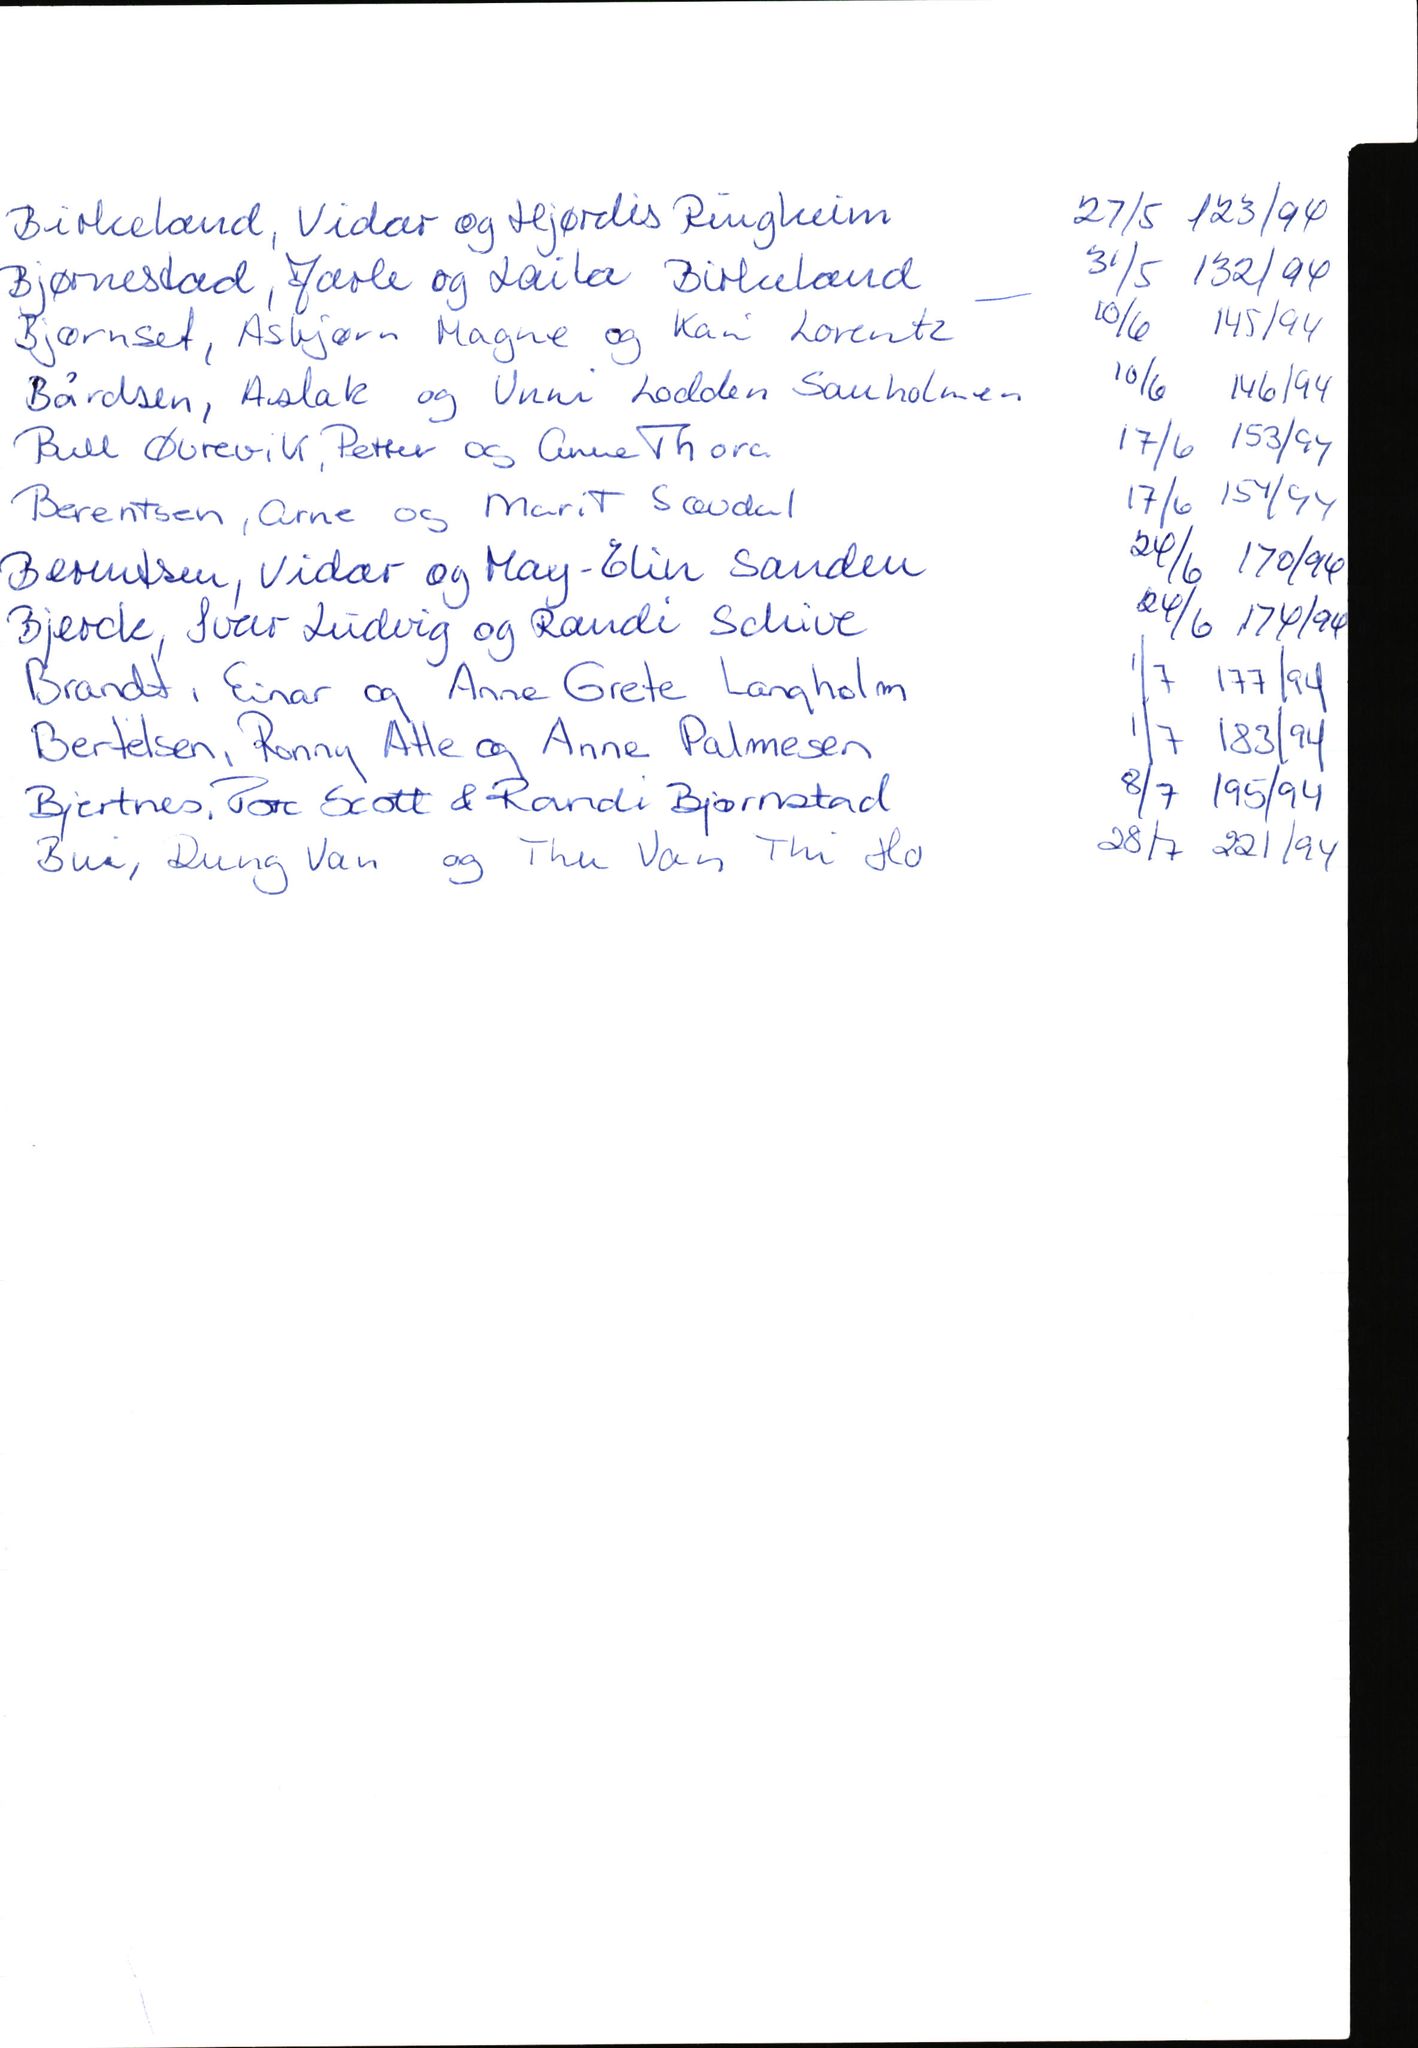 Birkeland, Vidar og Hjørdis Ringheim 27/5 123/94
Bjørnestad, Jarle og Laila Birkeland 31/5 132/94
Bjørnset, Asbjørn Magne og Kari Lorentz 10/6 145/94
Bårdsen, Aslak og Unni Lodden Sauholmen 10/6 146/94
Bull Øvrevik, Petter og Anne Thora 17/6 153/94
Berentsen, Arne og Marit Sævdal 17/6 154/94
Berentsen, Vidar og May-Elin Sanden 24/6 170/94
Bjerck, Ivar Ludvig og Randi Schive 24/6 174/94
Brandt, Einar og Anne Grete Langholm 1/7 177/94
Bertelsen, Ronny Atle og Anne Palmesen 1/7 183/94
Bjertnes, Tor Scott & Randi Bjørnstad 8/7 195/94
Bui, Dung Van og Thu Van Thi Ho 28/7 221/94